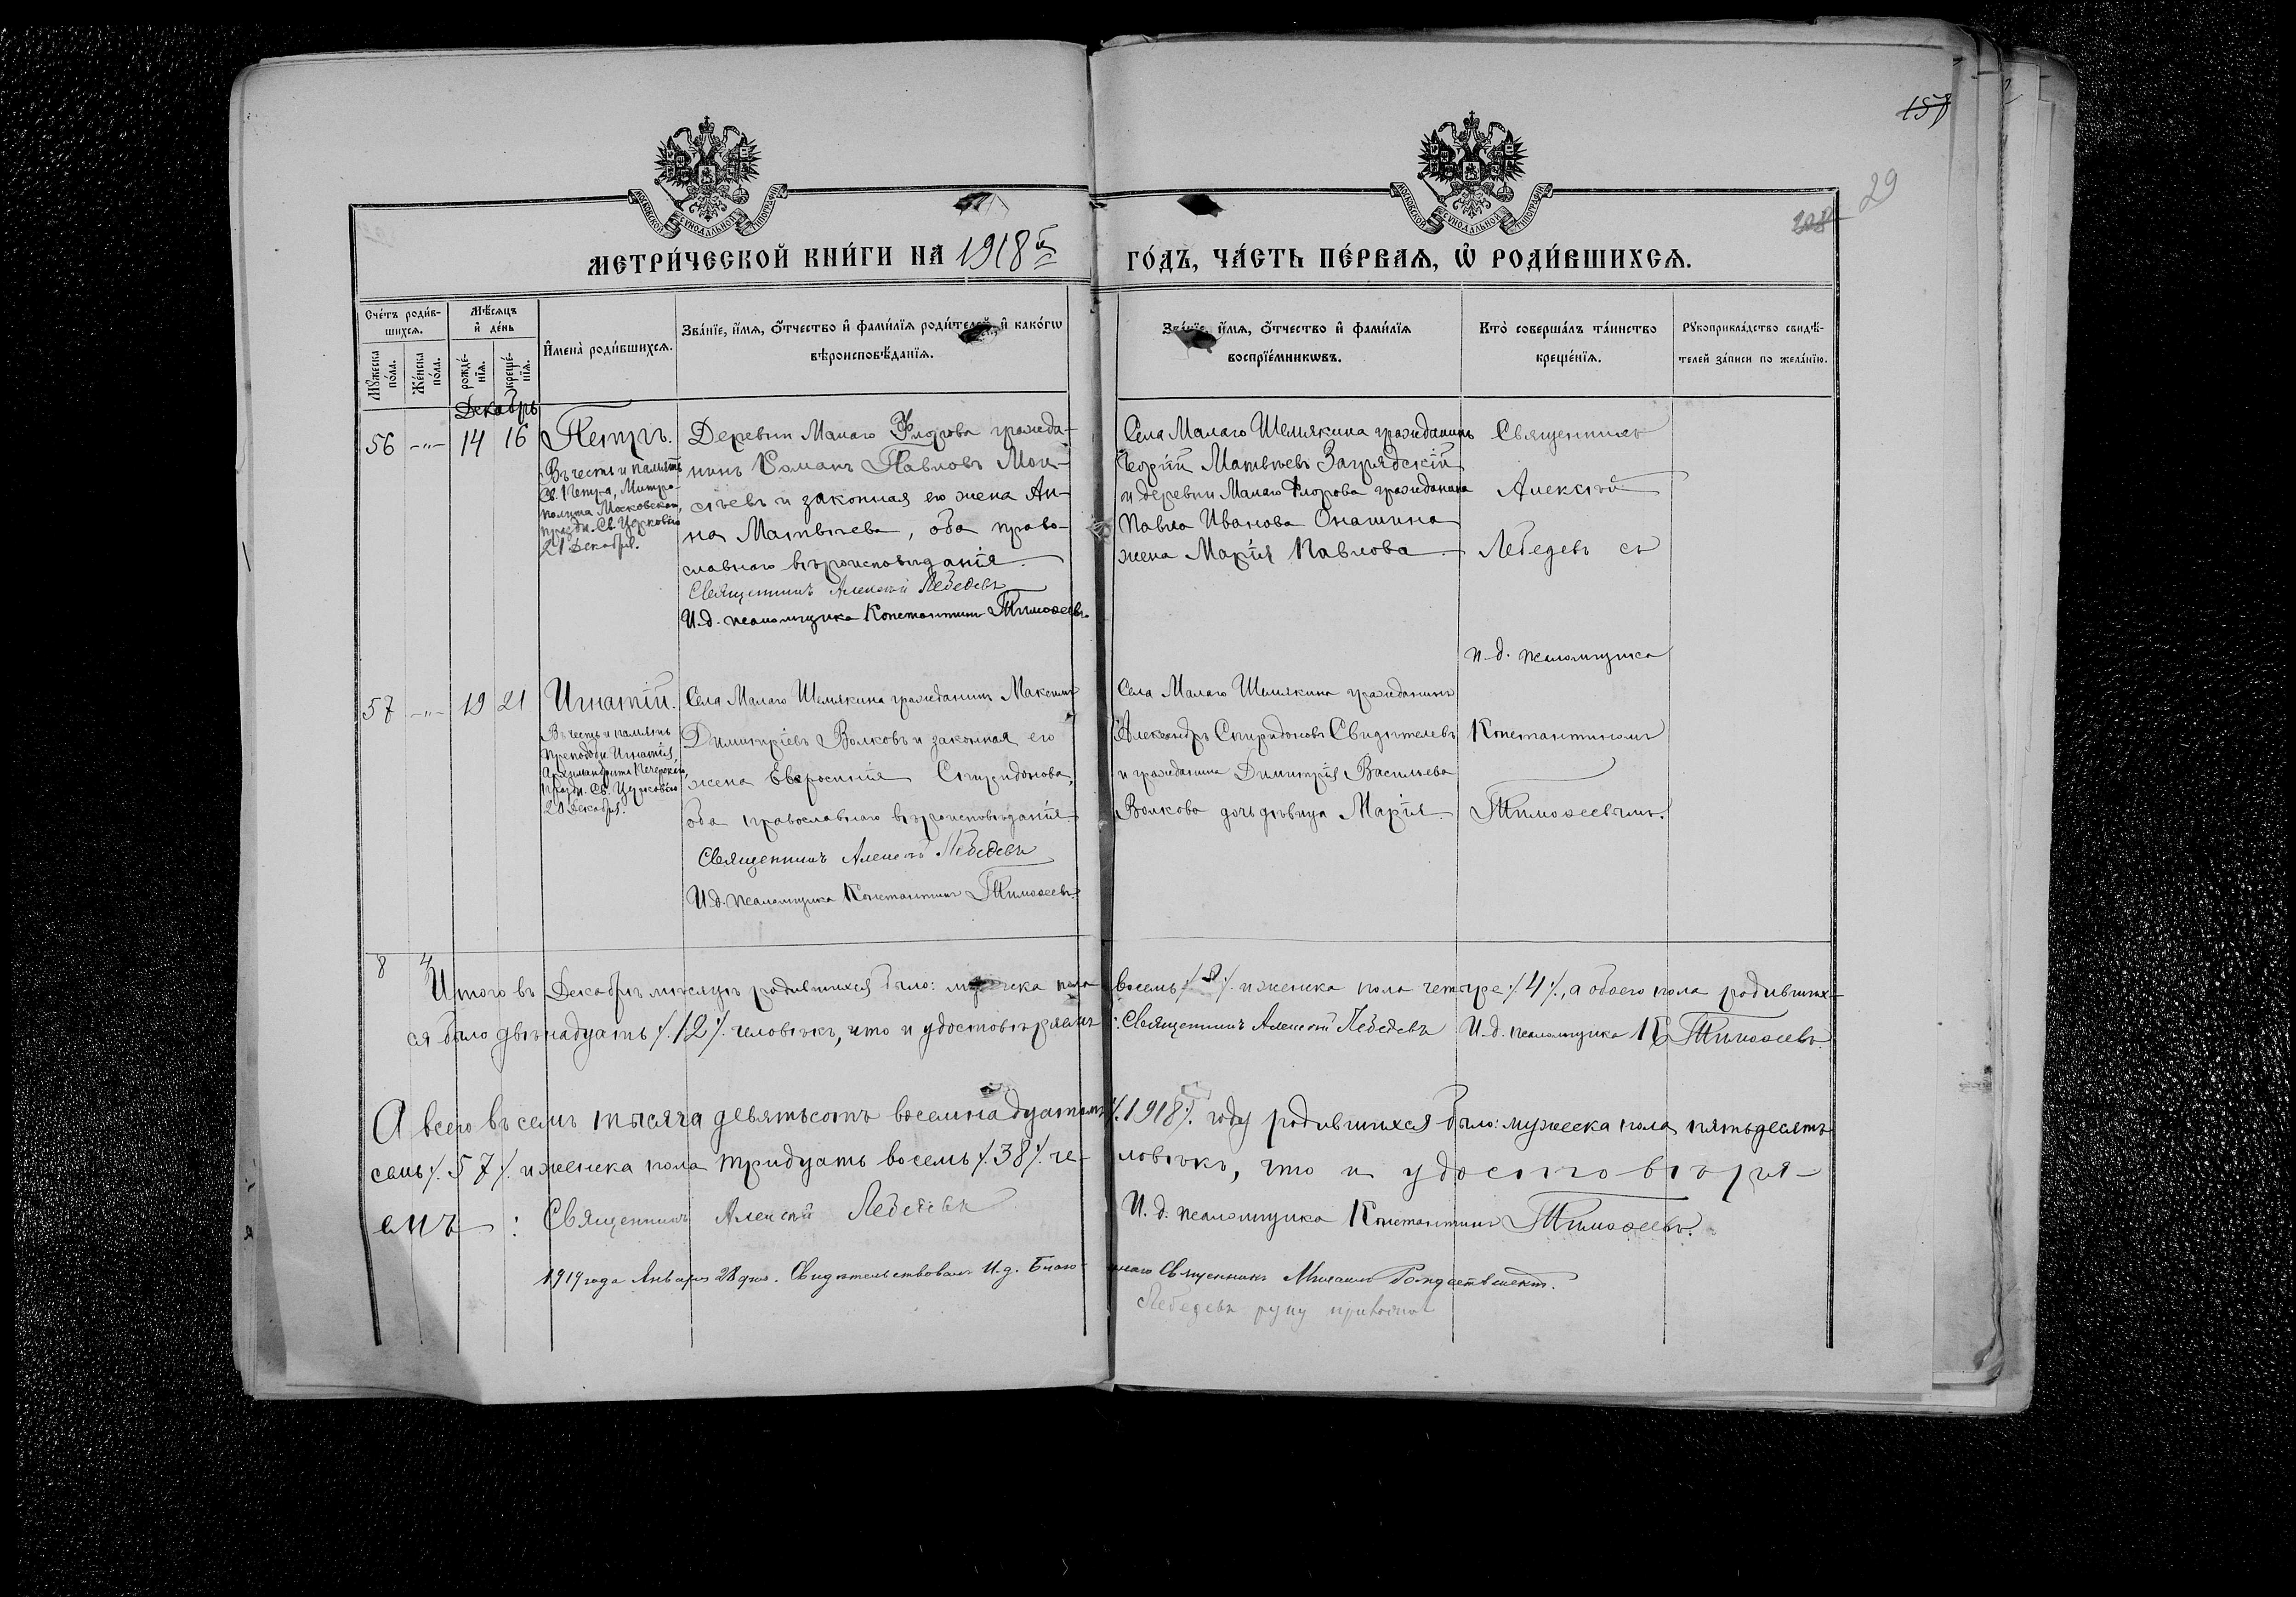 157
29
МОСКОВСКОЙ СѴНОДАЛЬНОЙ ТИПОГРАФІИ
МОСКОВСКОЙ СѴНОДАЛЬНОЙ ТИПОГРАФІИ
МЕТРИ́ЧЕСКОЙ КНИ́ГИ НА 1918й ГО́ДЪ, ЧА́СТЬ ПЕ́РВАѦ, Ѡ҆ РОДИ́ВШИХСѦ.
Сче́тъ роди́в-
шихсѧ.
Мꙋ́жеска по́ла.
Же́нска по́ла.
Мѣ́сѧцъ
и҆ де́нь
рожде́-нїѧ.
креще́-нїѧ.
И҆мена̀ роди́вшихсѧ.
Зва́нїе, и҆́мѧ, ѻ҆́тчество и҆ фами́лїѧ роди́телей, и҆ како́гѡ
вѣроисповѣ́данїѧ.
Зва́нїе, и҆́мѧ, ѻ҆́тчество и҆ фами́лїѧ
воспрїе́мникѡвъ.
Кто̀ соверша́лъ та́инство
креще́нїѧ.
Рꙋкоприкла́дство свидѣ́-
телей за́писи по жела́нїю.
Декабрь
56 -"- 14 16 Петръ.
Въ честь и память
Св. Петра, Митро-
полита Московскаго,
праздн. Св. Церковію
21 Декабря.
Деревни Малаго Флорова гражда-
нинъ Романъ Павловъ Мои-
сѣевъ и законная его жена Ан-
на Матвѣева, оба право-
славнаго вѣроисповѣданія.
Священникъ Алексѣй Лебедевъ
И.д. псаломщика Константинъ Тимоѳеевъ.
Села Малаго Шемякина гражданинъ
Георгій Матвѣевъ Загрядскій
и деревни Малаго Флорова гражданина
Павла Иванова Онашина
жена Марія Павлова.
Священникъ
Алексѣй
Лебедевъ съ
и.д. псаломщика
Константиномъ
Тимоѳеевымъ.
57 -"- 19 21 Игнатій.
Въ честь и память
преподобн. Игнатія,
Архимандрита Печерскаго,
праздн. Св. Церковію
20 Декабря.
Села Малаго Шемякина гражданинъ Максимъ
Димитріевъ Волковъ и законная его
жена Евфросинія Спиридонова,
оба православнаго вѣроисповѣданія.
Священникъ Алексѣй Лебедевъ
И.д. псаломщика Константинъ Тимоѳеевъ.
Села Малаго Шемякина гражданинъ
Александръ Спиридоновъ Свидѣтелевъ
и гражданина Димитрія Васильева
Волкова дочь дѣвица Марія.
8 4
Итого въ Декабрѣ мѣсяцѣ родившихся было: мужеска пола восемь /.8/. и женска пола четыре /.4/., а обоего пола родивших-
ся было двѣнадцать /.12/. человѣкъ, что и удостовѣряемъ: Священникъ Алексѣй Лебедевъ И.д. псаломщика К Тимоѳеевъ.
А всего въ семъ тысяча девятьсотъ восемнадцатомъ /.1918/. году родившихся было: мужеска пола пятьдесятъ
семь /.57/. и женска пола тридцать восемь /.38/. че-ловѣкъ, что и удостовѣря-
емъ: Священникъ Алексѣй Лебедевъ И.д. псаломщика Константинъ Тимоѳеевъ.
1919 года Января 28 дня. Свидѣтельствовалъ И.д. Благо- Священникъ Михаилъ Рождественскій.
Лебедевъ руку приложилъ